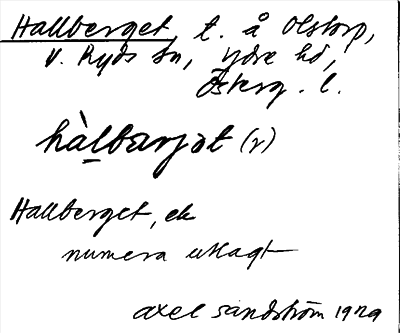 Hallberget, t. å Olstorp,
V. Ryds sn, Ydre hd,
Österg. l.
hàlbærjət (r)
Hallberget, ek
numera utlagt
Axel Sandström 1929